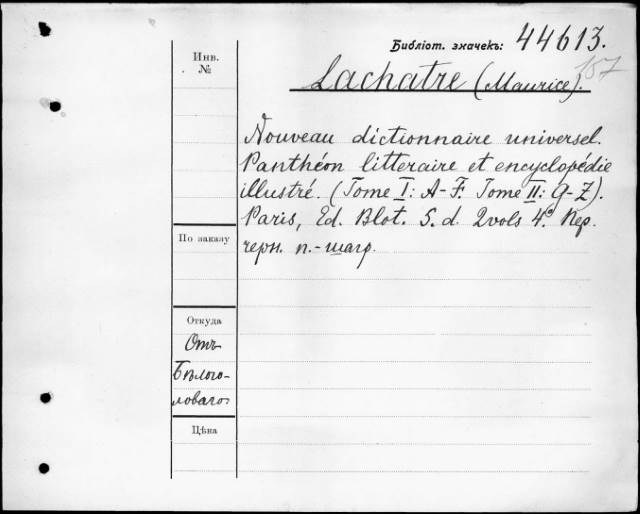 Библіот. значекъ: 44613.
157
Инв.
№
Lachatre (Maurice).
Nouveau dictionnaire universel.
Panthéon litteraire et encyclopédie
illustré. (Tome I: A-F. Tome II: G-Z).
Paris, Ed. Blot. S. d. 2 vols 4º. Пер.
черн. п.-шагр.
По заказу
Откуда
Отъ
Бѣлого-
ловаго
Цѣна